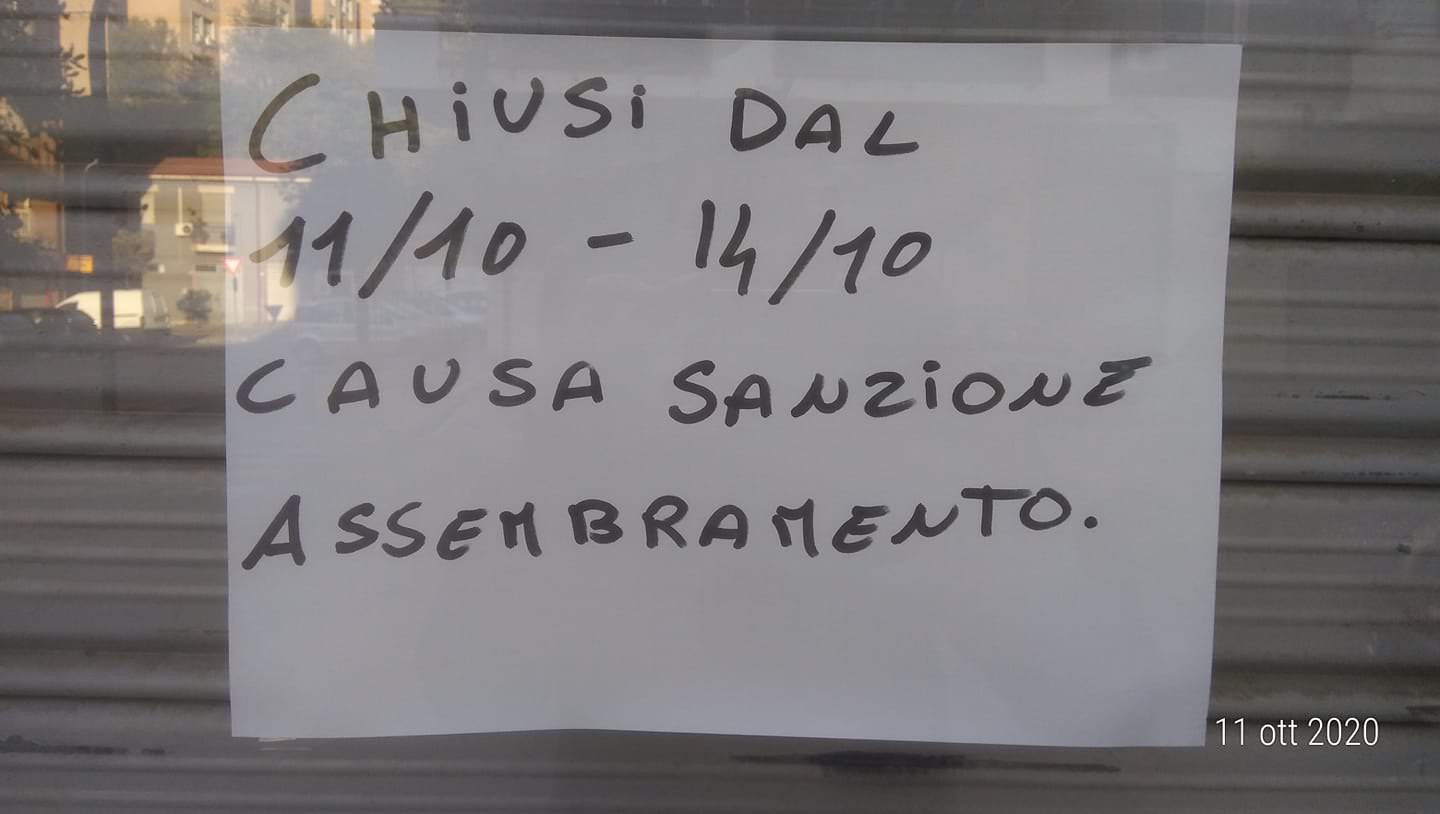 CHiUSi DAL
11/10 - 14/10
CAUSA SANZiONE
ASSEMBRAMENTO.
11 ott 2020